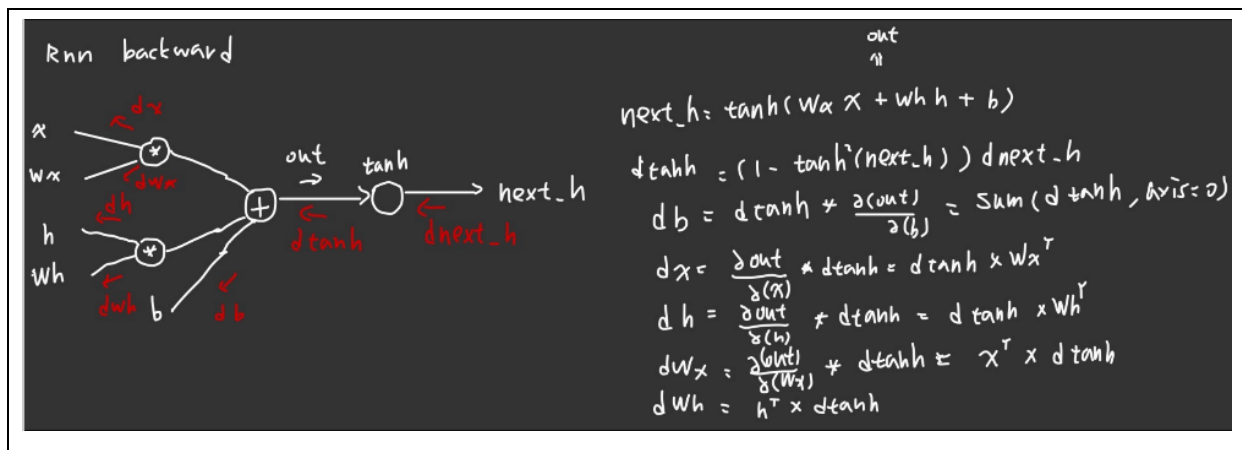 Rnn backward
x
dx
*
Wx
dWx
dh
h
*
Wh
dWh
b
db
+
out
→
dtanh
tanh
next_h
dnext_h
out
next_h = tanh(Wx x + Wh h + b)
dtanh = (1 - tanh²(next_h)) dnext_h
db = dtanh * ∂(out)/∂(b) = sum(dtanh, axis=0)
dx = ∂out/∂(x) * dtanh = dtanh × Wxᵀ
dh = ∂out/∂(h) * dtanh = dtanh × Whᵀ
dWx = ∂(out)/∂(Wx) * dtanh = xᵀ × dtanh
dWh = hᵀ × dtanh